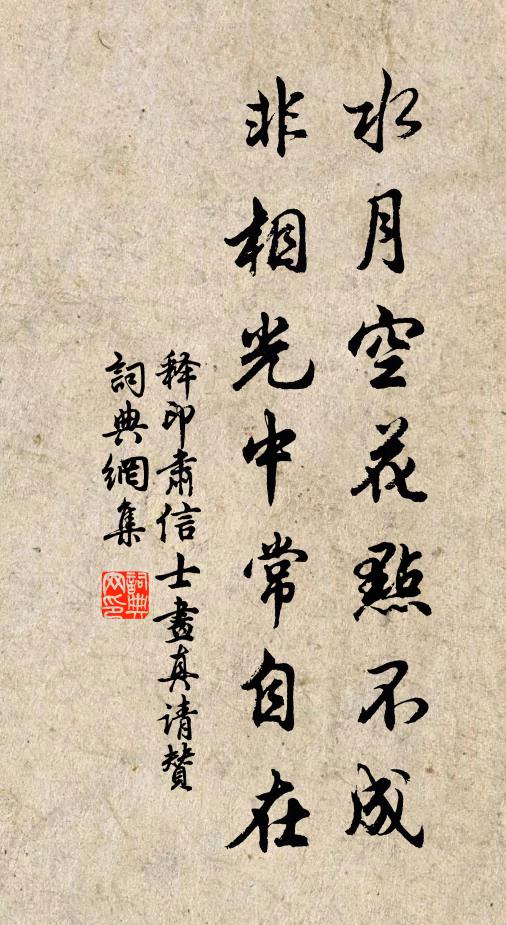 水月空花點不成
非相光中常自在
释印肅信士畫真请贊
詞典網集
詞典網印